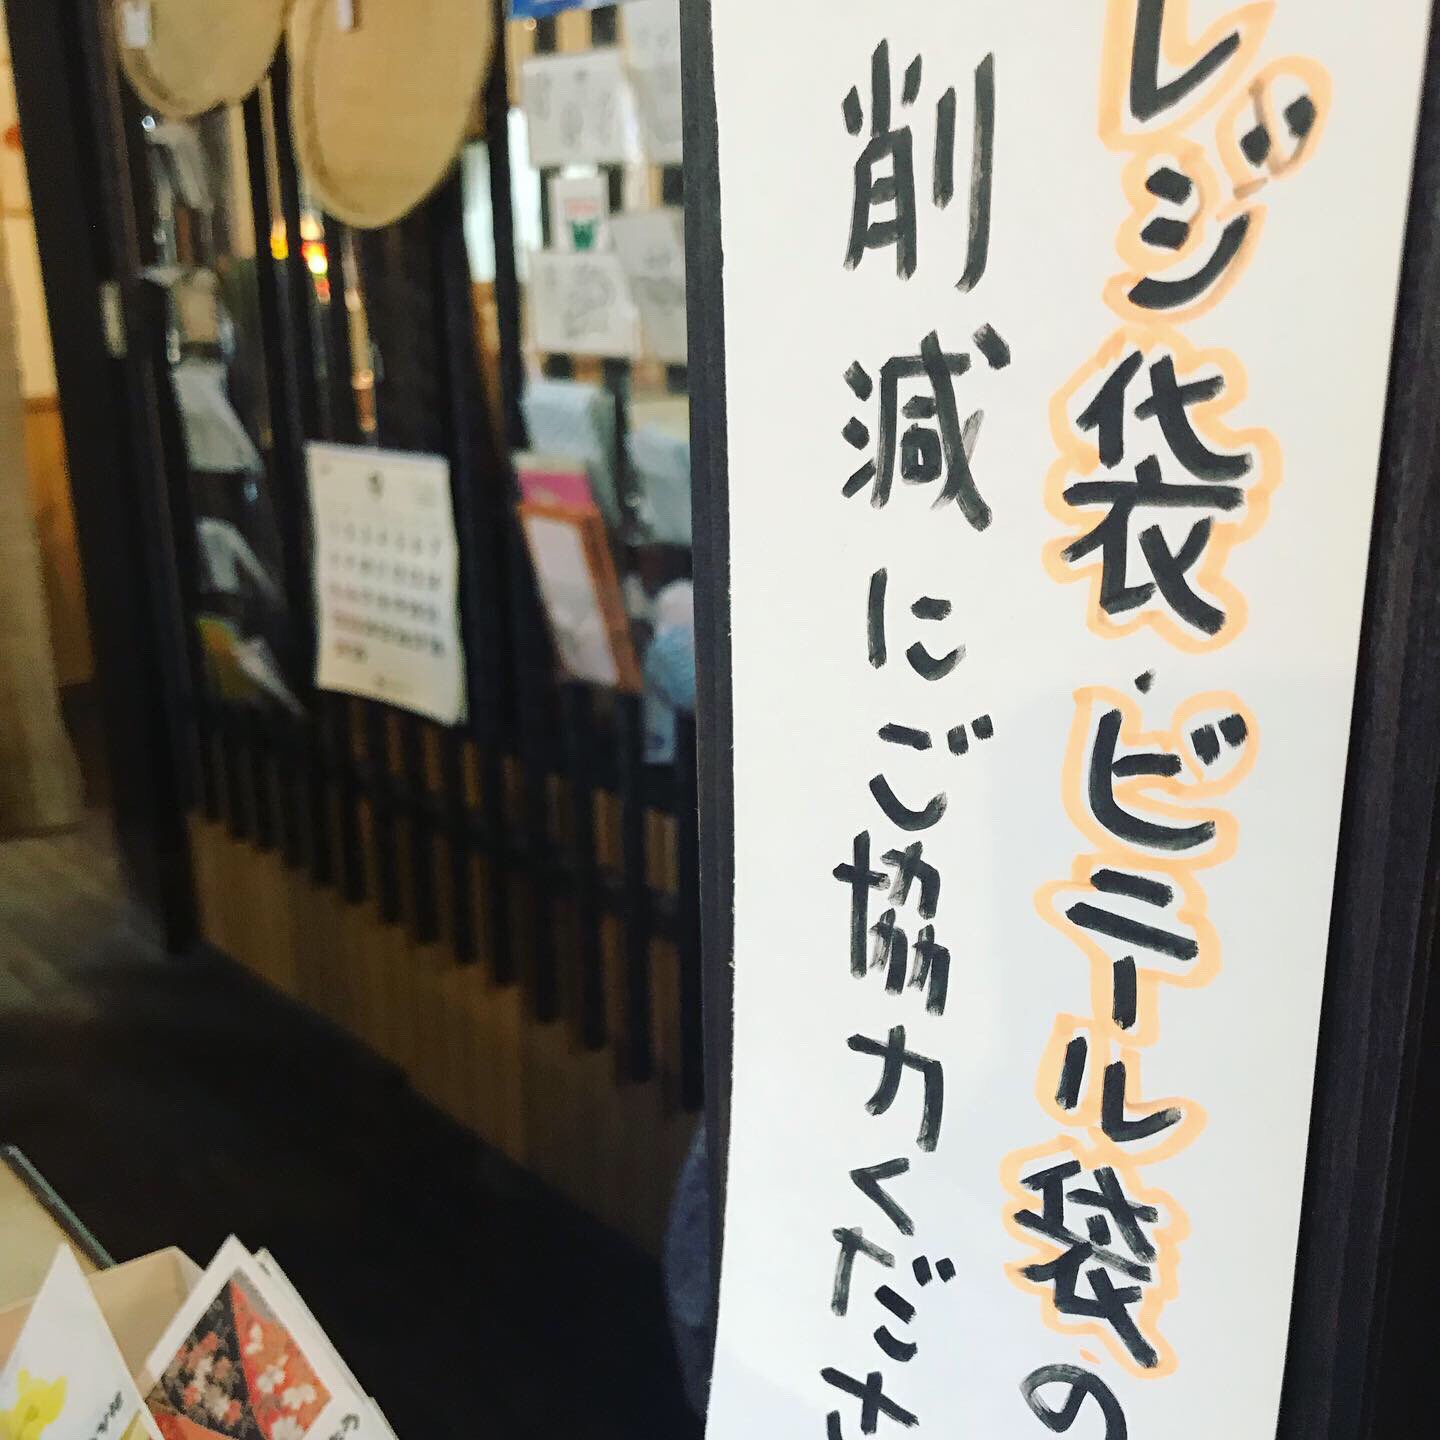 レジ袋・ビニール袋の
削減にご協力くださ